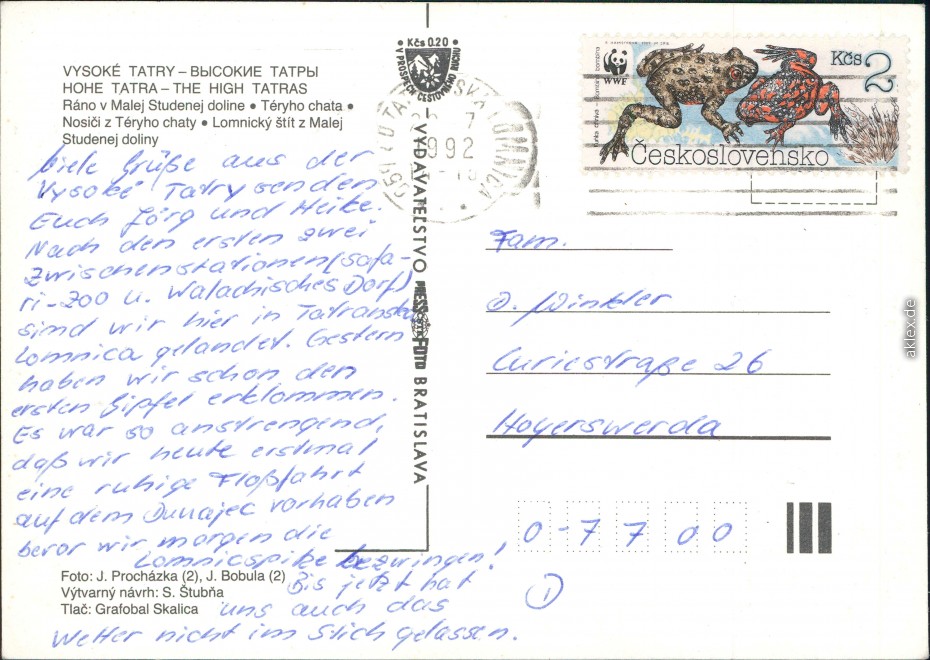 VYSOKÉ TATRY – ВЫСОКИЕ ТАТРЫ
HOHE TATRA – THE HIGH TATRAS
Ráno v Malej Studenej doline • Téryho chata •
Nosiči z Téryho chaty • Lomnický štít z Malej
Studenej doliny
Viele Grüße aus der
Vysoké Tatry senden
Euch Jörg und Heike.
Nach den ersten zwei
Zwischenstationen (Safa-
ri-Zoo u. Walachisches Dorf)
sind wir hier in Tatranská
Lomnica gelandet. Gestern
haben wir schon den
ersten Gipfel erklommen.
Es war so anstrengend,
daß wir heute erstmal
eine ruhige Floßfahrt
auf dem Dunajec vorhaben
bevor wir morgen die
Lomnicspike bezwingen!
Bis jetzt hat
uns auch das
Wetter nicht im Stich gelassen.
Foto: J. Procházka (2), J. Bobula (2)
Výtvarný návrh: S. Štubňa
Tlač: Grafobal Skalica
Kčs 0.20
V PROSPECH CESTOVNÉHO RUCHU
VYDAVATEĽSTVO PRESSFOTO BRATISLAVA
7
1992
WWF
Kčs 2
Československo
Fam.
D. Winkler
Curiestraße 26
Hoyerswerda
0-7700
1
aklex.de